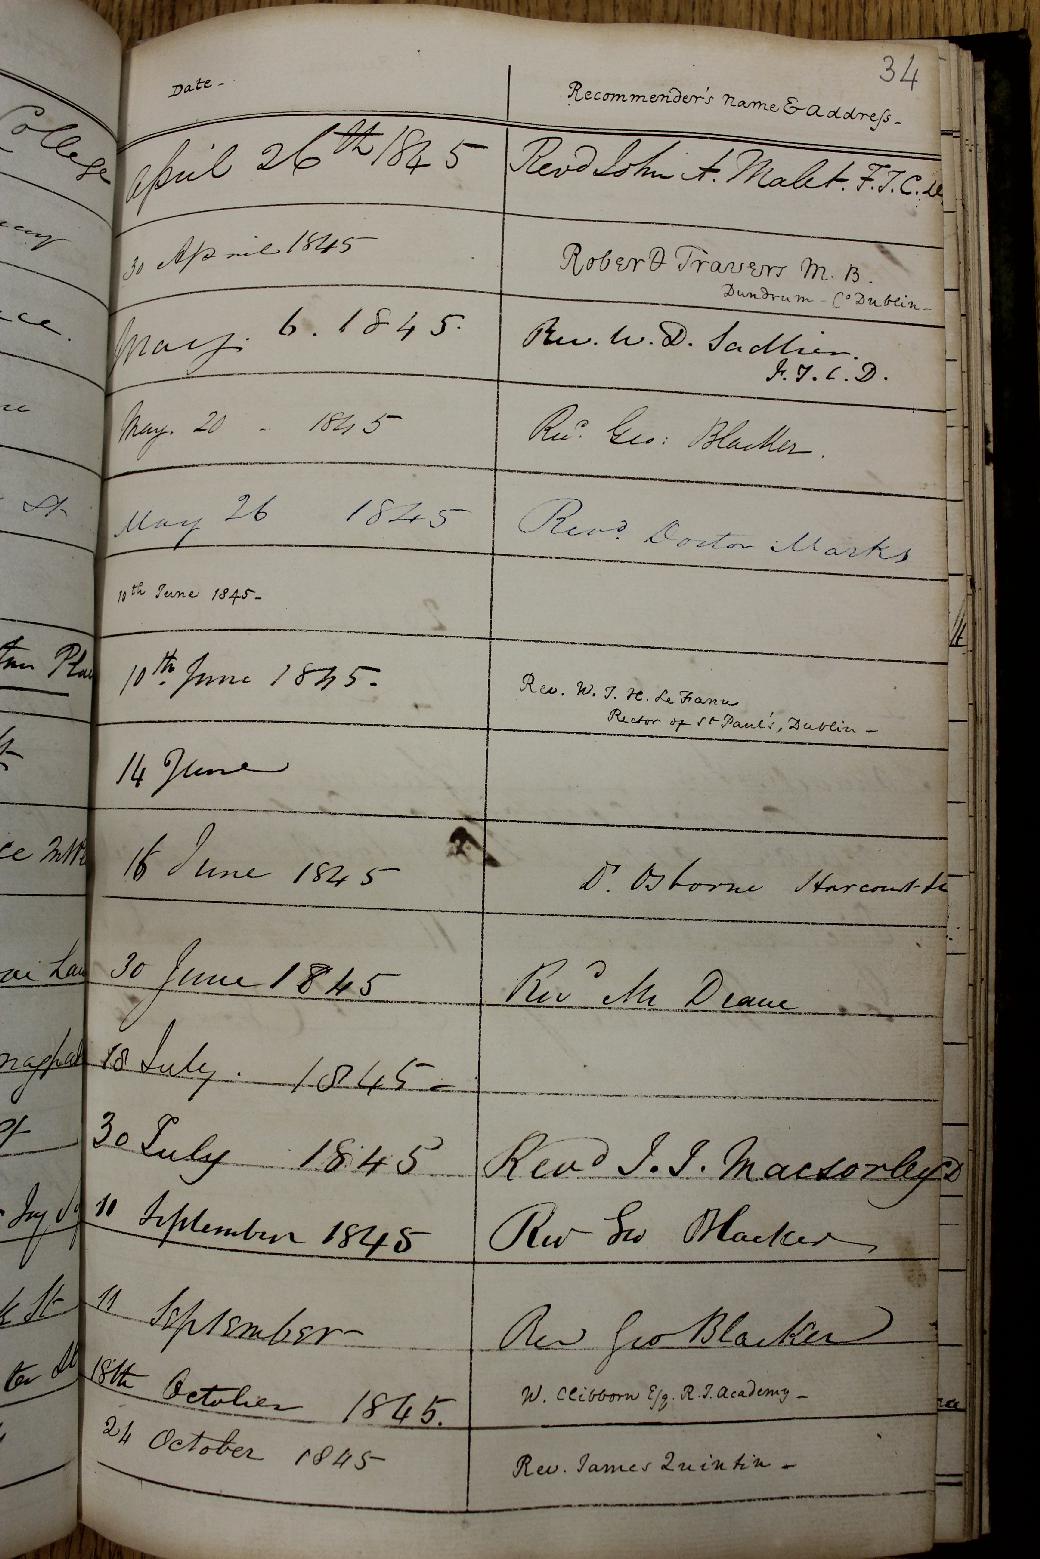 34
Date - Recommender's name & address -
April 26th 1845 Revd John A. Malet. F.T.C.
30 April 1845 Robert Travers M. B.
Dundrum - Co Dublin -
May. 6. 1845. Rev. W. D. Sadleir.
F. T. C. D.
May. 20 - 1845 Revd. Geo: Blacker.
May 26 1845 Revd. Doctor Marks
10th June 1845 -
10th June 1845 - Rev. W. J. H. Le Fanu
Rector of St Paul's, Dublin -
14 June
16 June 1845 Dr. Osborne Harcourt St
30 June 1845 Revd Mr Deane
18 July. 1845 -
30 July 1845 Revd J. J. Macsorley
11 September 1845 Rev Geo Blacker
11 September - Rev Geo Blacker
18th October 1845. W. Clibborn Esq. R. I. Academy -
24 October 1845 Rev. James Quintin -
College
St